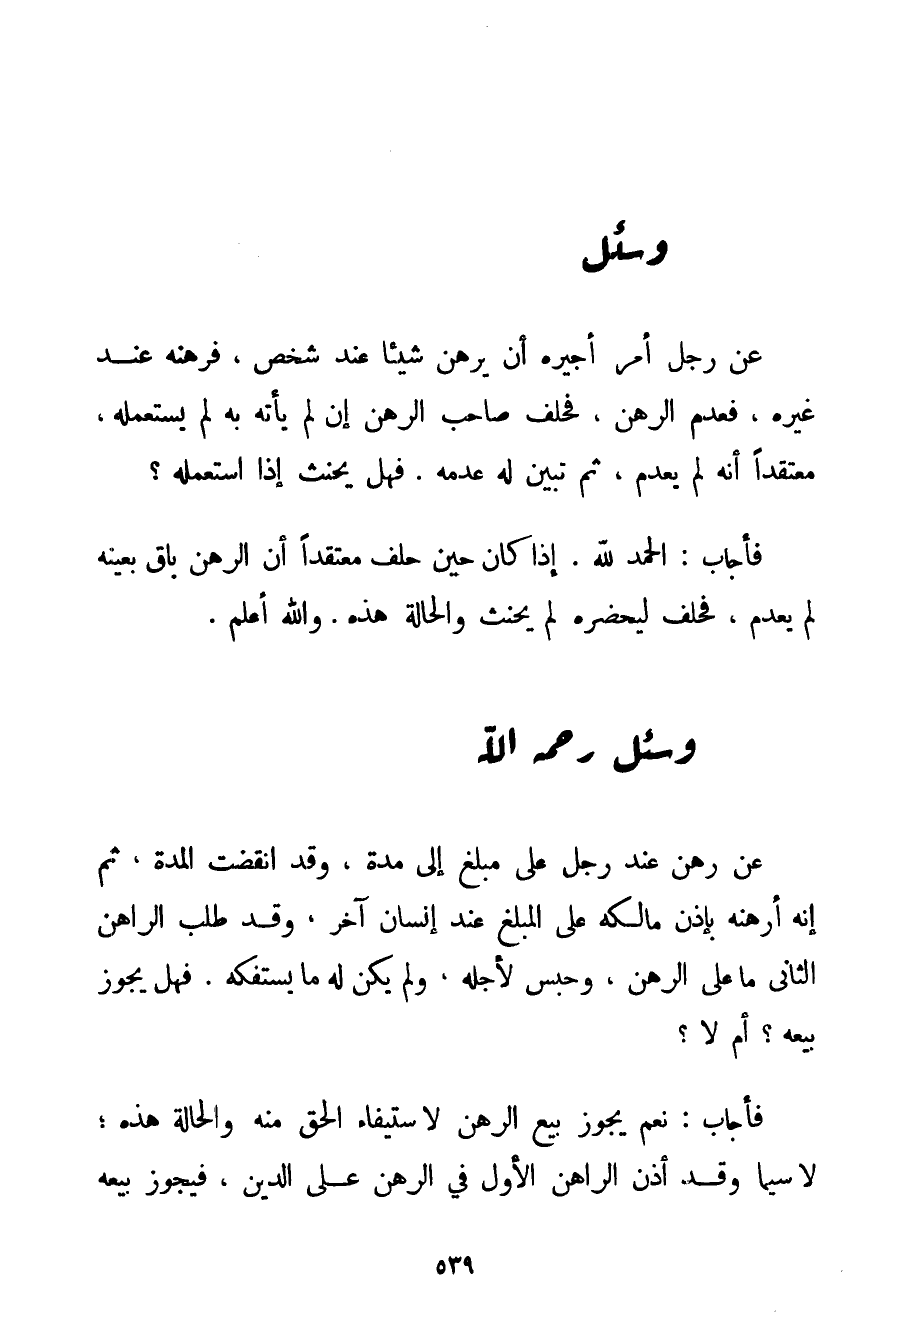 وسئل
عن رجل أمر أجيره أن يرهن شيئا عند شخص ، فرهنه عنــد
غيره ، فعدم الرهن ، فحلف صاحب الرهن إن لم يأته به لم يستعمله ،
معتقداً أنه لم يعدم ، ثم تبين له عدمه . فهل يحنث إذا استعمله ؟
فأجاب : الحمد لله . إذا كان حين حلف معتقداً أن الرهن باق بعينه
لم يعدم ، فحلف ليحضره لم يحنث والحالة هذه . والله أعلم .
وسئل رحمه الله
عن رهن عند رجل على مبلغ إلى مدة ، وقد انقضت المدة ، ثم
إنه أرهنه بإذن مالكه على المبلغ عند إنسان آخر ، وقـد طلب الراهن
الثانى ما على الرهن ، وحبس لأجله ، ولم يكن له ما يستفكه . فهل يجوز
بيعه ؟ أم لا ؟
فأجاب : نعم يجوز بيع الرهن لاستيفاء الحق منه والحالة هذه ؛
لاسيما وقــد أذن الراهن الأول في الرهن عــلى الدين ، فيجوز بيعه
٥٣٩